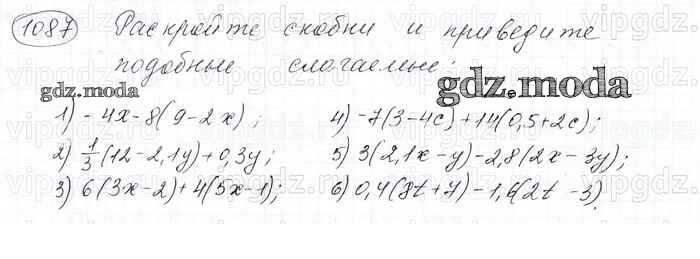 1087 Раскройте скобки и приведите
подобные слагаемые:
gdz.moda
gdz.moda
1) -4x-8(9-2x);
2) 1/3(12-2,1y)+0,3y;
3) 6(3x-2)+4(5x-1);
4) -7(3-4c)+14(0,5+2c);
5) 3(2,1x-y)-2,8(2x-3y);
6) 0,4(8t+7)-1,6(2t-3).